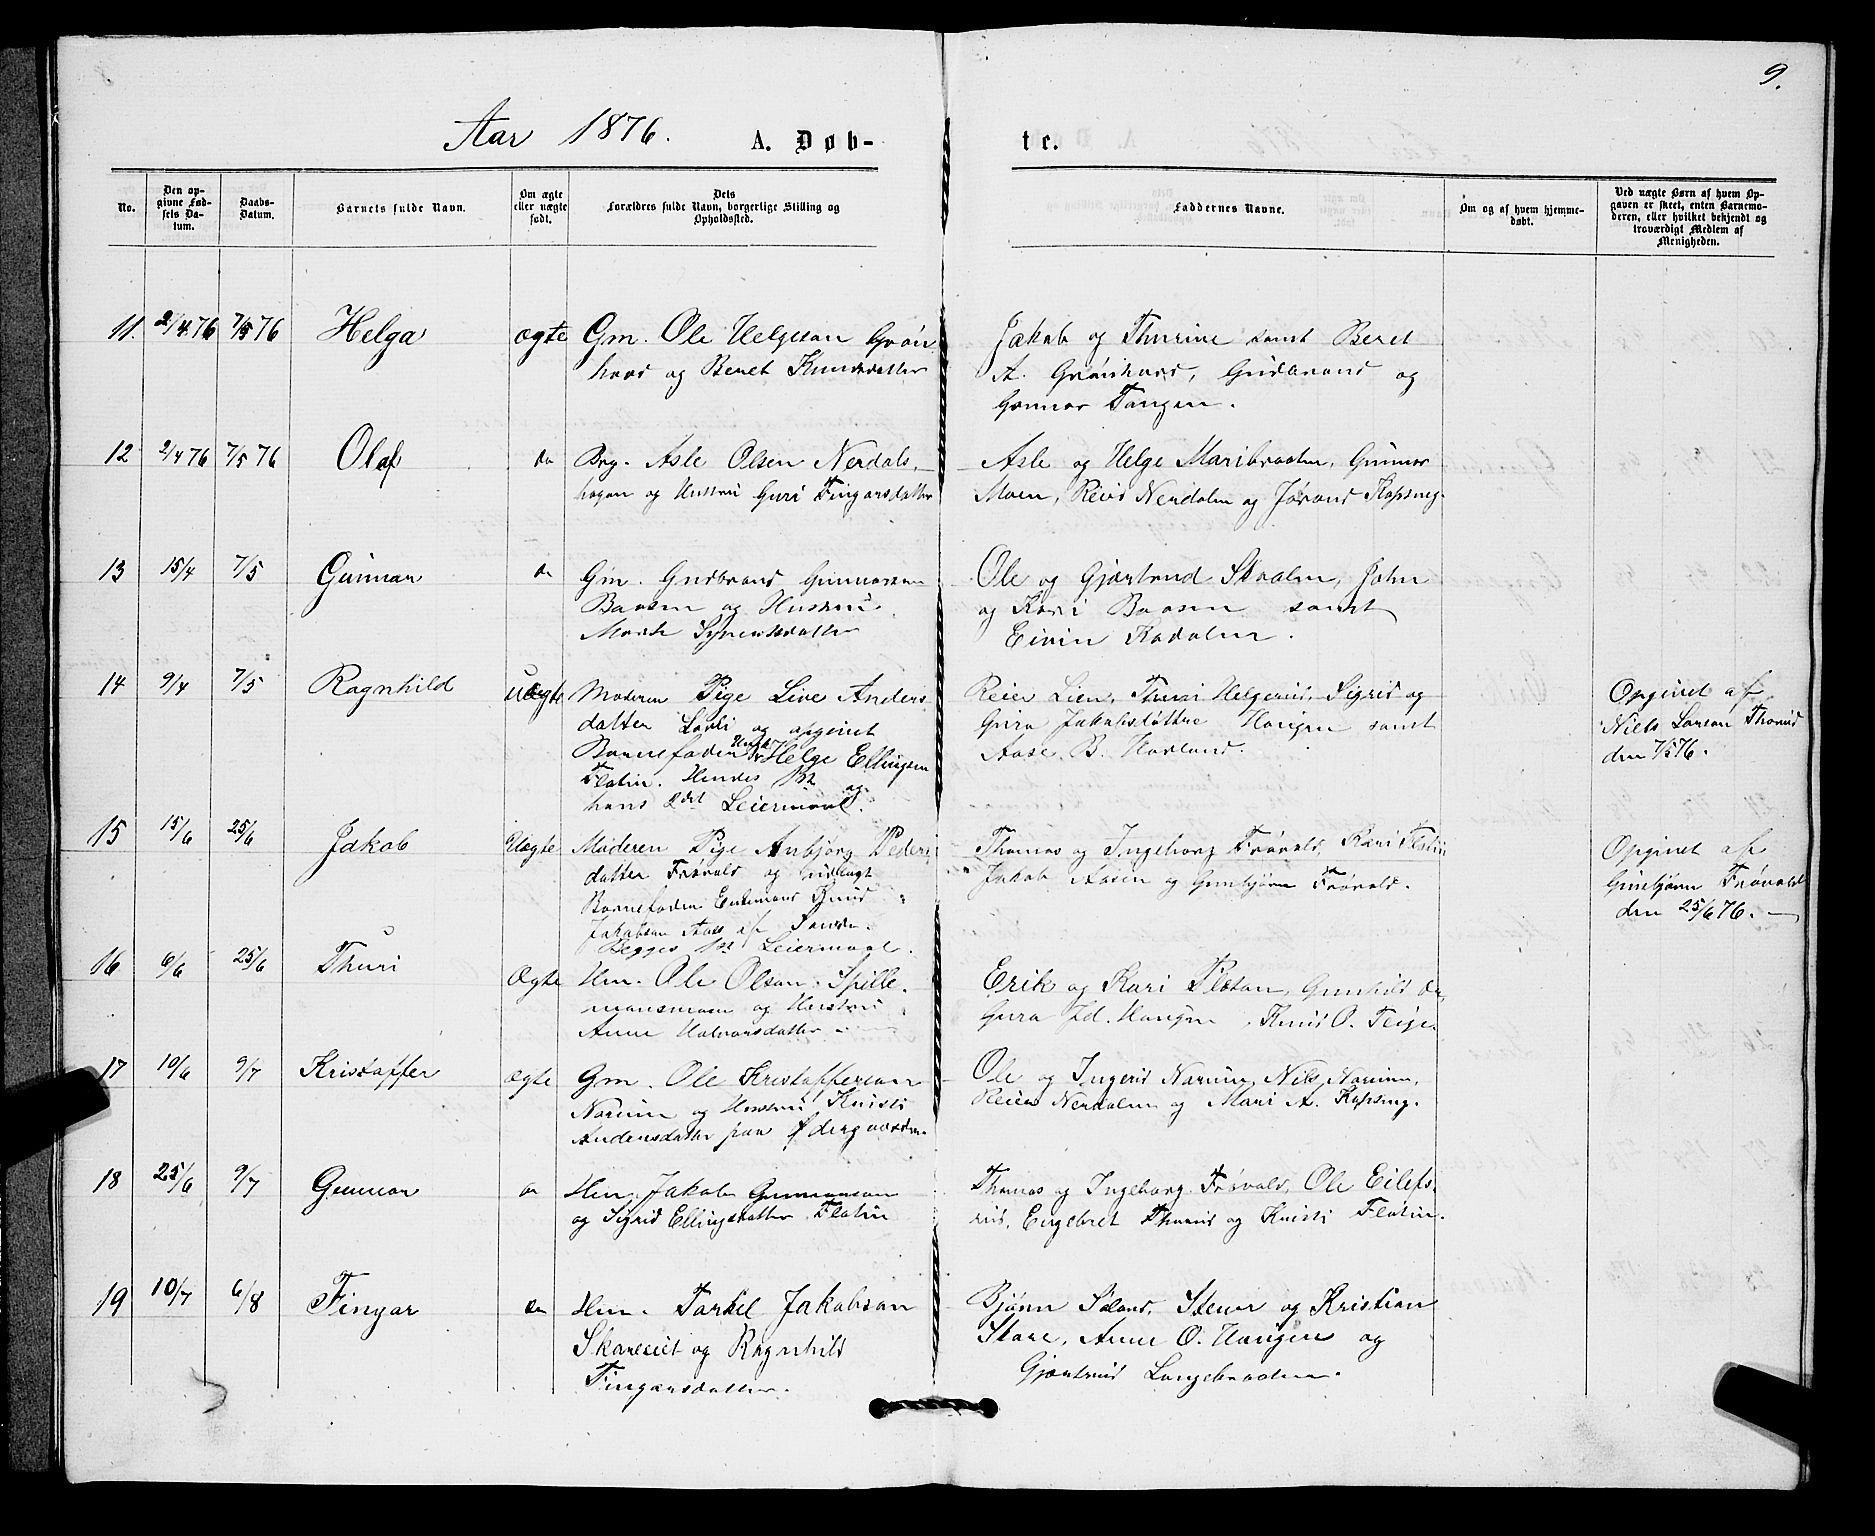 9.
Aar 1876. A. Døb-
te.
No.
Den op-
givne Fød-
sels Da-
tum.
Daabs-
Datum.
Barnets fulde Navn.
Om ægte
eller uægte
født.
Dets
Forældres fulde Navn, borgerlige Stilling og
Opholdssted.
Faddernes Navne.
Om og af hvem hjemme-
døbt.
Ved uægte Børn af hvem Op-
gaven er skeet, enten Barnemo-
deren, eller hvilket bekjendt og
troværdigt Medlem af
Menigheden.
11. 2/4 76 7/5 76 Helga ægte Gm. Ole Helgesen Grøn
hovd og Beret Knudsdatter
Jakob og Thurine samt Beret
A. Grønhovd, Gudbrand og
Gunnar Tangen.
12 2/4 76 7/5 76 Olaf do Brg. Asle Olsen Nerdals
hagen og Hustru Guri Fingarsdatter
Asle og Helge Maribraaten, Gunnar
Moen, Reier Nerdalen og Jørand Kopseng.
13 15/4 7/5 Gunnar do Gm. Gudbrand Gunnarsen
Baasen og Hustru
Marit Syversdatter
Ole og Gjertrud Skaalen, John
og Kari Baasen samt
Eivin Kadalen.
14 9/4 7/5 Ragnhild uægte Moderen Pige Live Anders
datter Lieli og opgivet
Barnefader Helge Ellingsen
Flatin. Hendes 1st og
hans 2det Leiermaal.
Reier Lien, Thuri Helgerud, Sigrid og
Guro Jakobsdøttre Haugen samt
Aase B. Havland.
Opgivet af
Niels Larsen Thorud
den 7/5 76.
15 15/6 25/6 Jakob Uægte Moderen Pige Anbjørg Peders
datter Frøvold og udlagt
Barnefader Enkemand Knud
Jakobsen Aase af Sande.
Begges 1st Leiermaal.
Thomas og Ingeborg Frøvold, Kari Flatin
Jakob Aasen og Gunbjørn Frøvold.
Opgivet af
Gunbjørn Frøvold
den 25/6 76.
16 6/6 25/6 Thuri Ægte Hm. Ole Olsen Spille-
mansmoen og Hustru
Anne Halvorsdatter
Erik og Kari Platan, Gunhild og
Guro Jd. Haugen, Knud O. Teige.
17 10/6 9/7 Kristoffer ægte Gm. Ole Kristoffersen
Narum og Hustru Kristi
Andersdatter paa Ødergaarden.
Ole og Ingerid Narum, Nils Narum,
Reier Nerdalen og Mari A. Kopseng.
18 25/6 9/7 Gunnar do Hm. Jakob Gunnarsen
og Sigrid Ellingsdatter Flatin
Thomas og Ingeborg Frøvold, Ole Eilefs-
rud, Engebret Thorud og Kristi Flatin.
19 10/7 6/8 Fingar do Hm. Torkel Jakobsen
Skareseiet og Ragnhild
Fingarsdatter.
Bjørn Søland, Steiner og Kristian
Skare, Anne O. Haugen og
Gjertrud Langebraaten.